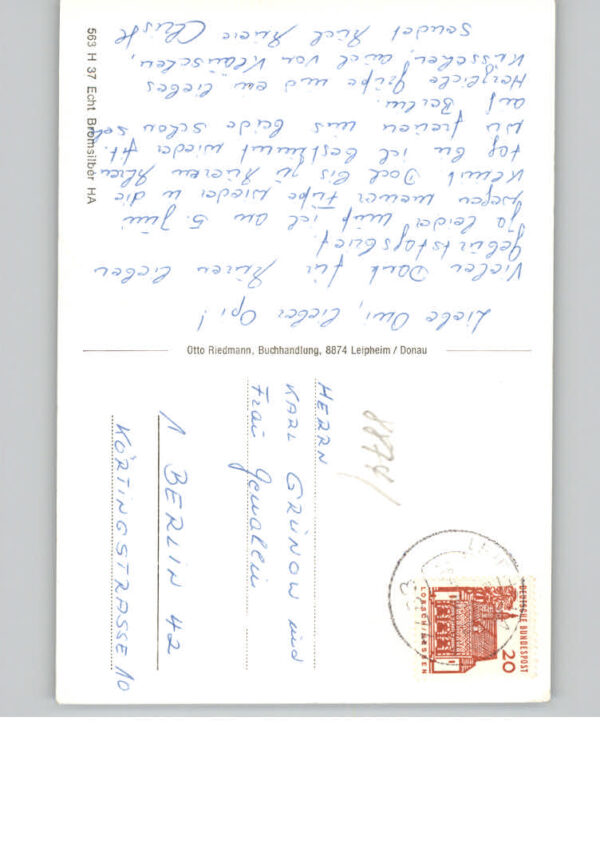 Liebe Omi, lieber Opi!
Vielen Dank für Euren lieben
Geburtstagsbrief.
Ja leider muß ich am 5. Juni
wegen meiner Füße wieder in die
Klinik. Doch bis zu Eurem Ehren
tag bin ich bestimmt wieder fit.
Wir freuen uns beide schon sehr
auf Berlin.
Herzliche Grüße und ein liebes
Küsschen, auch von Kläuschen,
sendet Euch Eure
563 H 37 Echt Bromsilber HA
Otto Riedmann, Buchhandlung, 8874 Leipheim / Donau
8874/
DEUTSCHE BUNDESPOST
20
LORSCH/HESSEN
HERRN
KARL GRÜNOW und
Frau Gemahlin
1 BERLIN 42
KÖRTINGSTRASSE 10